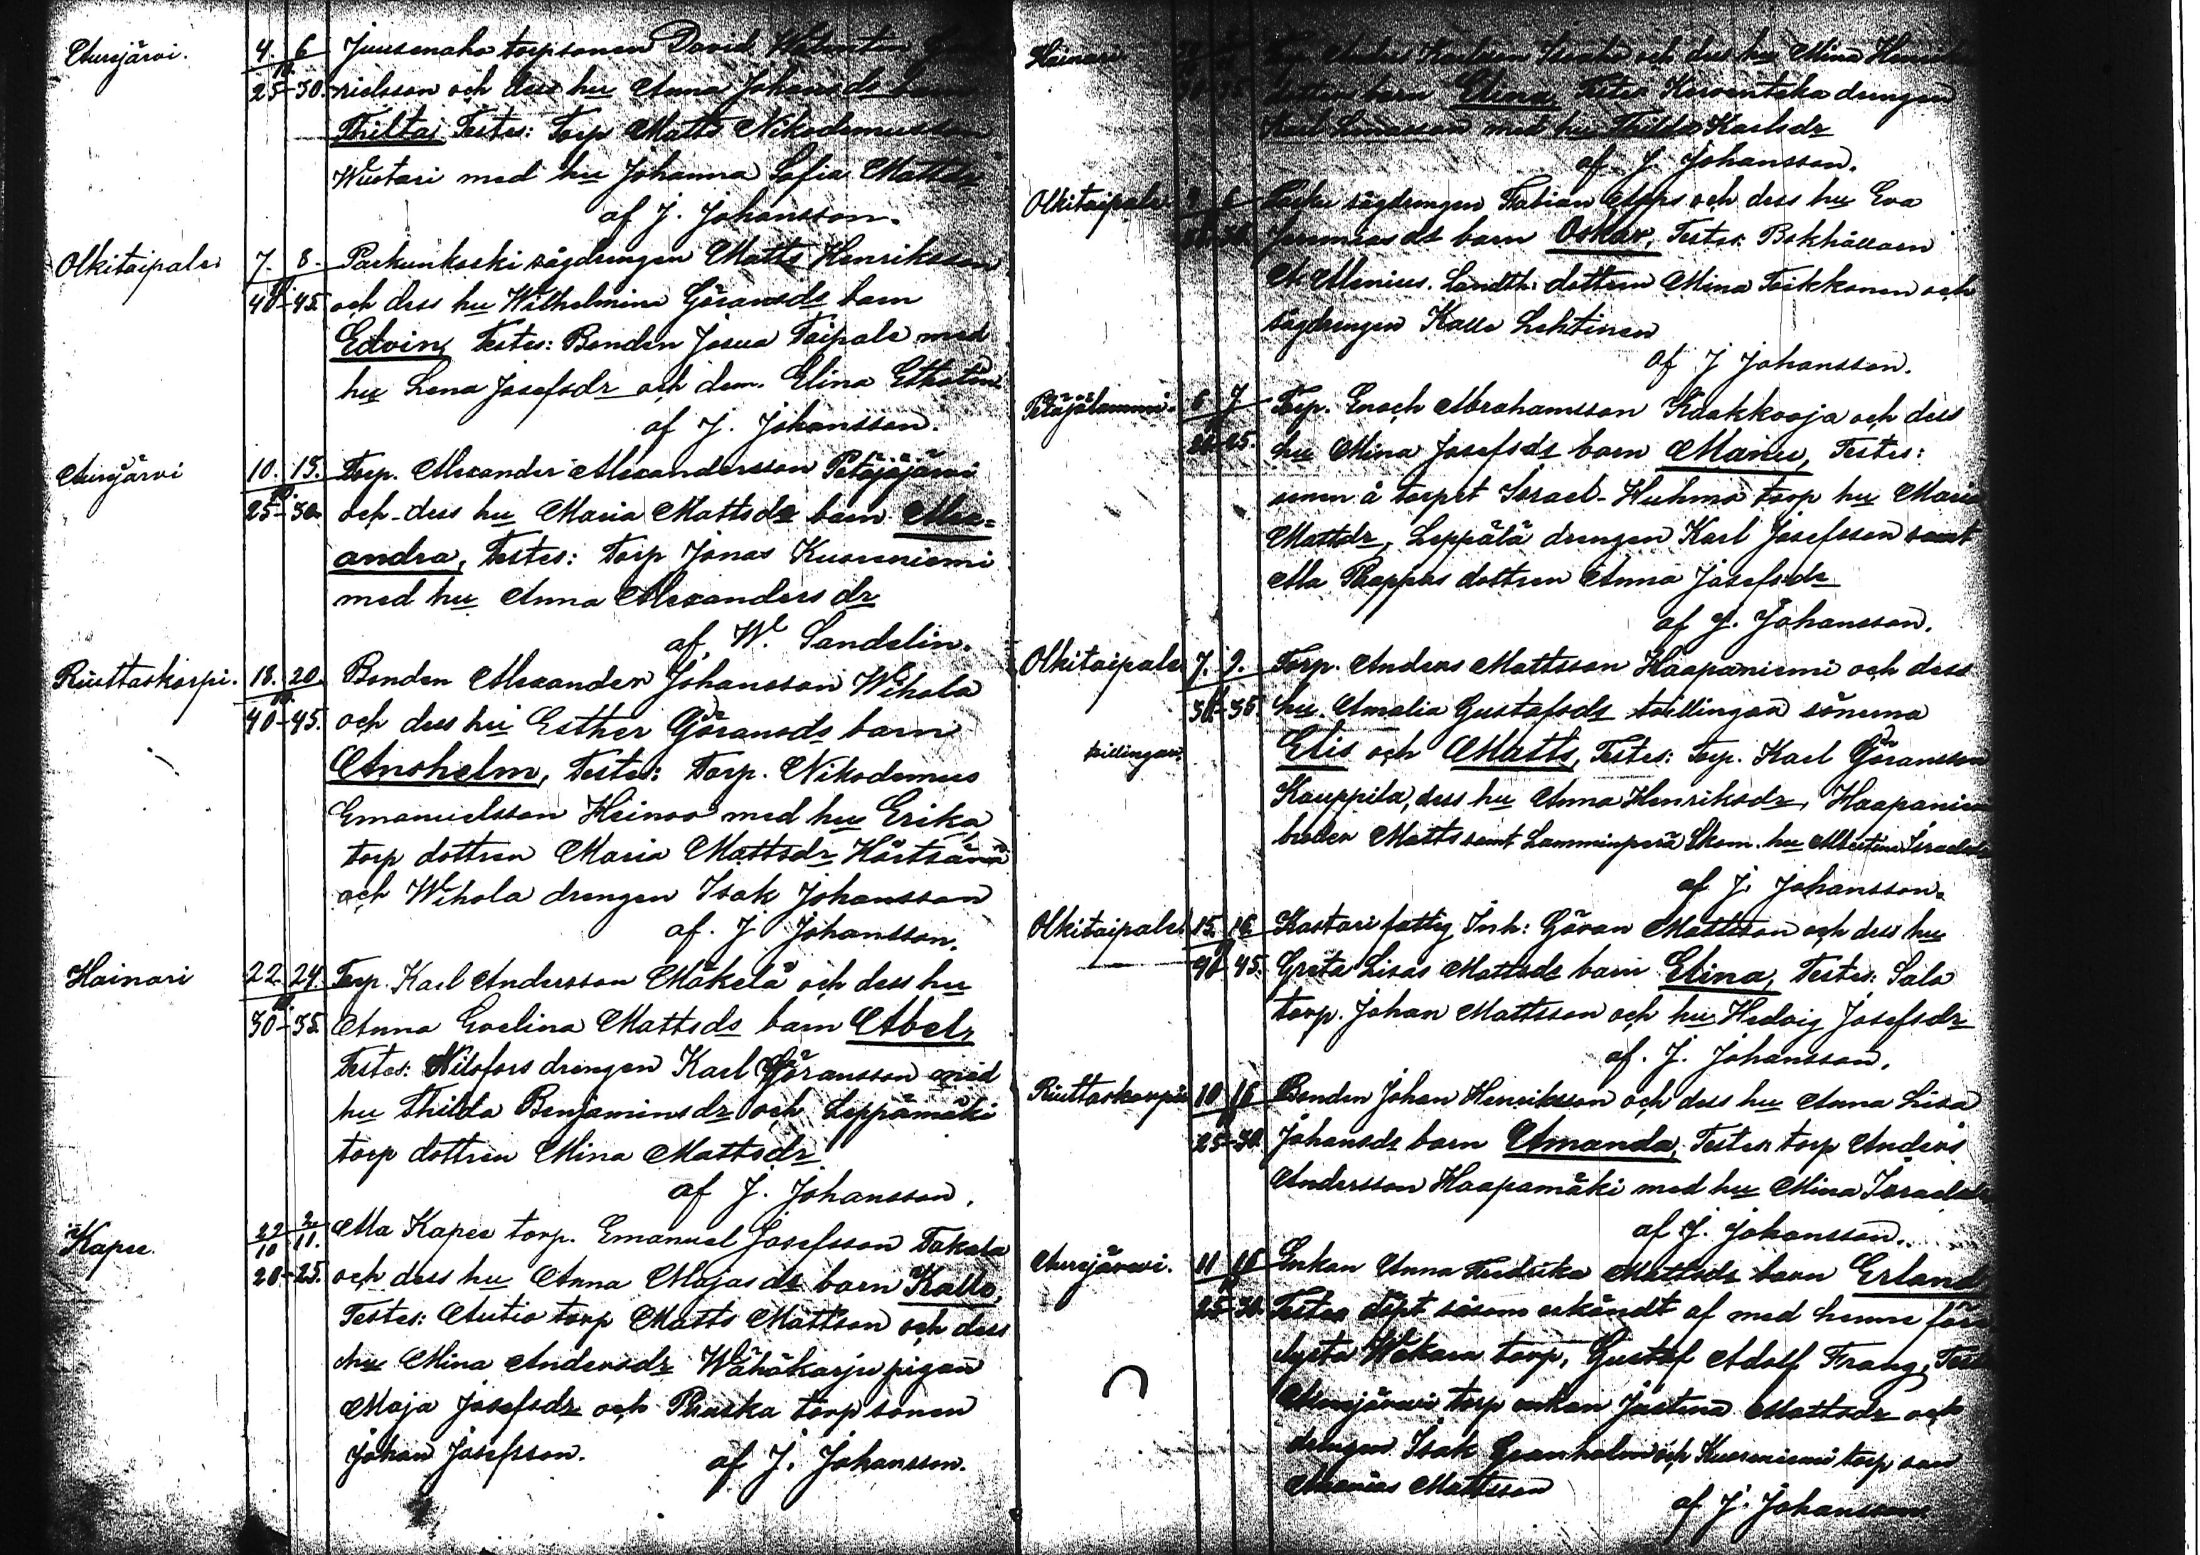 Aurejärvi. 4. 6 Juusenaho torpsonen David
10.
25-30. rielsson och dess hu Anna Johansds barn
Thilta, Testes: Torp Matts Nikodemusson
Wuotari med hu Johanna Sofia Mattsdr
af J. Johansson.
Olkitaipale 7. 8. Parkunkoski sågdrengen Matts Henriksson
10.
40-45. och dess hu Wilhelmina Göransds barn
Edvin, Testes: Bonden Josua Taipale med
hu Lena Josefsdr och dem. Elina
af J. Johansson.
Aurejärvi 10. 15. Torp. Alexander Alexandersson Petäjäjärvi
10.
25-30. och dess hu Maria Mattsds barn Alex=
andra, Testes: Torp Jonas Kuoreniemi
med hu Anna Alexanders dr
af W. Sandelin.
Riuttaskorpi. 18. 20. Bonden Alexander Johansson Wihola
10.
40-45. och dess hu Esther Göransds barn
Anshelm, Testes: Torp. Nikodemus
Emanuelsson Heinoo med hu Erika,
torp dottren Maria Mattsdr
och Wihola drengen Isak Johansson
af. J. Johansson.
Hainari 22. 24. Torp. Karl Andersson Mäkelä och dess hu
10.
30-35. Anna Evelina Mattsds barn Abel,
Testes: Nilsfors drengen Karl Göransson med
hu Thilda Benjaminsdr och Leppämäki
torp dottren Mina Mattsdr
af J. Johansson.
Kapee. 22/10 2/11. Ala Kapee torp. Emanuel Josefsson Takala
20-25. och dess hu Anna Majas ds barn Kalle,
Testes: Autio torp Matts Mattson och dess
hu Mina Andersdr Wähäkarju pigan
Maja Josefsdr och Ruuska torp sonen
Johan Josefsson. af J. Johansson.
Hainari Torp. Karlsson och dess hu Mina
barn Elina, Testes drengen
Karl med hu Thilda Karlsdr
af J. Johansson.
Olkitaipale sågdrengen Fabian och dess hu Eva
Jeremiasds barn Oskar, Testes: Bokhållaren
A Alenius. Landth: dottren Mina Teikkonen och
sågdrengen Kalle Lehtinen
af J Johansson.
Petäjälammi. 6 7 Torp. Enoch Abrahamsson Kaakkooja och dess
20-25. hu Mina Josefsds barn Manu, Testes:
sonen å torpet Israel-Huhmo torp hu Maria
Mattsdr, Leppälä drengen Karl Josefsson samt
Ala Pappas dottren Anna Josefsdr
af J. Johansson.
Olkitaipale 7. 9. Torp. Anders Mattsson Haapaniemi och dess
30-35. hu. Amalia Gustafsds tvillingar sönerna
tvillingar. Elis och Matts, Testes: Torp. Karl Göransson
Kauppila, dess hu Anna Henriksdr, Haapaniemi
broder Matts samt Lamminperä Skom. hu Albertina Israelsdr
af J. Johansson.
Olkitaipale 15. 16. Kastari fattig Inh: Göran Mattsson och dess hu
40-45. Greta Lisas Mattsds barn Elina, Testes: Salo
torp. Johan Mattsson och hu Hedvig Josefsdr
af. J. Johansson.
Riuttaskorpi 10 16 Bonden Johan Henriksson och dess hu Anna Lisa
25-30. Johansds barn Amanda, Testes torp Anders
Andersson Haapamäki med hu Mina Israelsdr
af J. Johansson.
Aurejärvi. 11 16 Enkan Anna Fredrika Mattsds barn Erland
25-30. Testes döpt såsom erkändt af med henne för
lysta Wekara torp, Gustaf Adolf Frang, Test
Aurejärvi torp enkan Justina Mattsdr och
drengen Isak Granholm och Kuoreniemi torp son
Ananias Mattsson
af J. Johansson